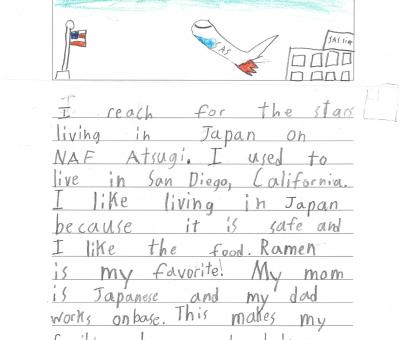 SAS
I reach for the stars
living in Japan on
NAF Atsugi. I used to
live in San Diego, California.
I like living in Japan
because it is safe and
I like the food. Ramen
is my favorite! My mom
is Japanese and my dad
works onbase. This makes my